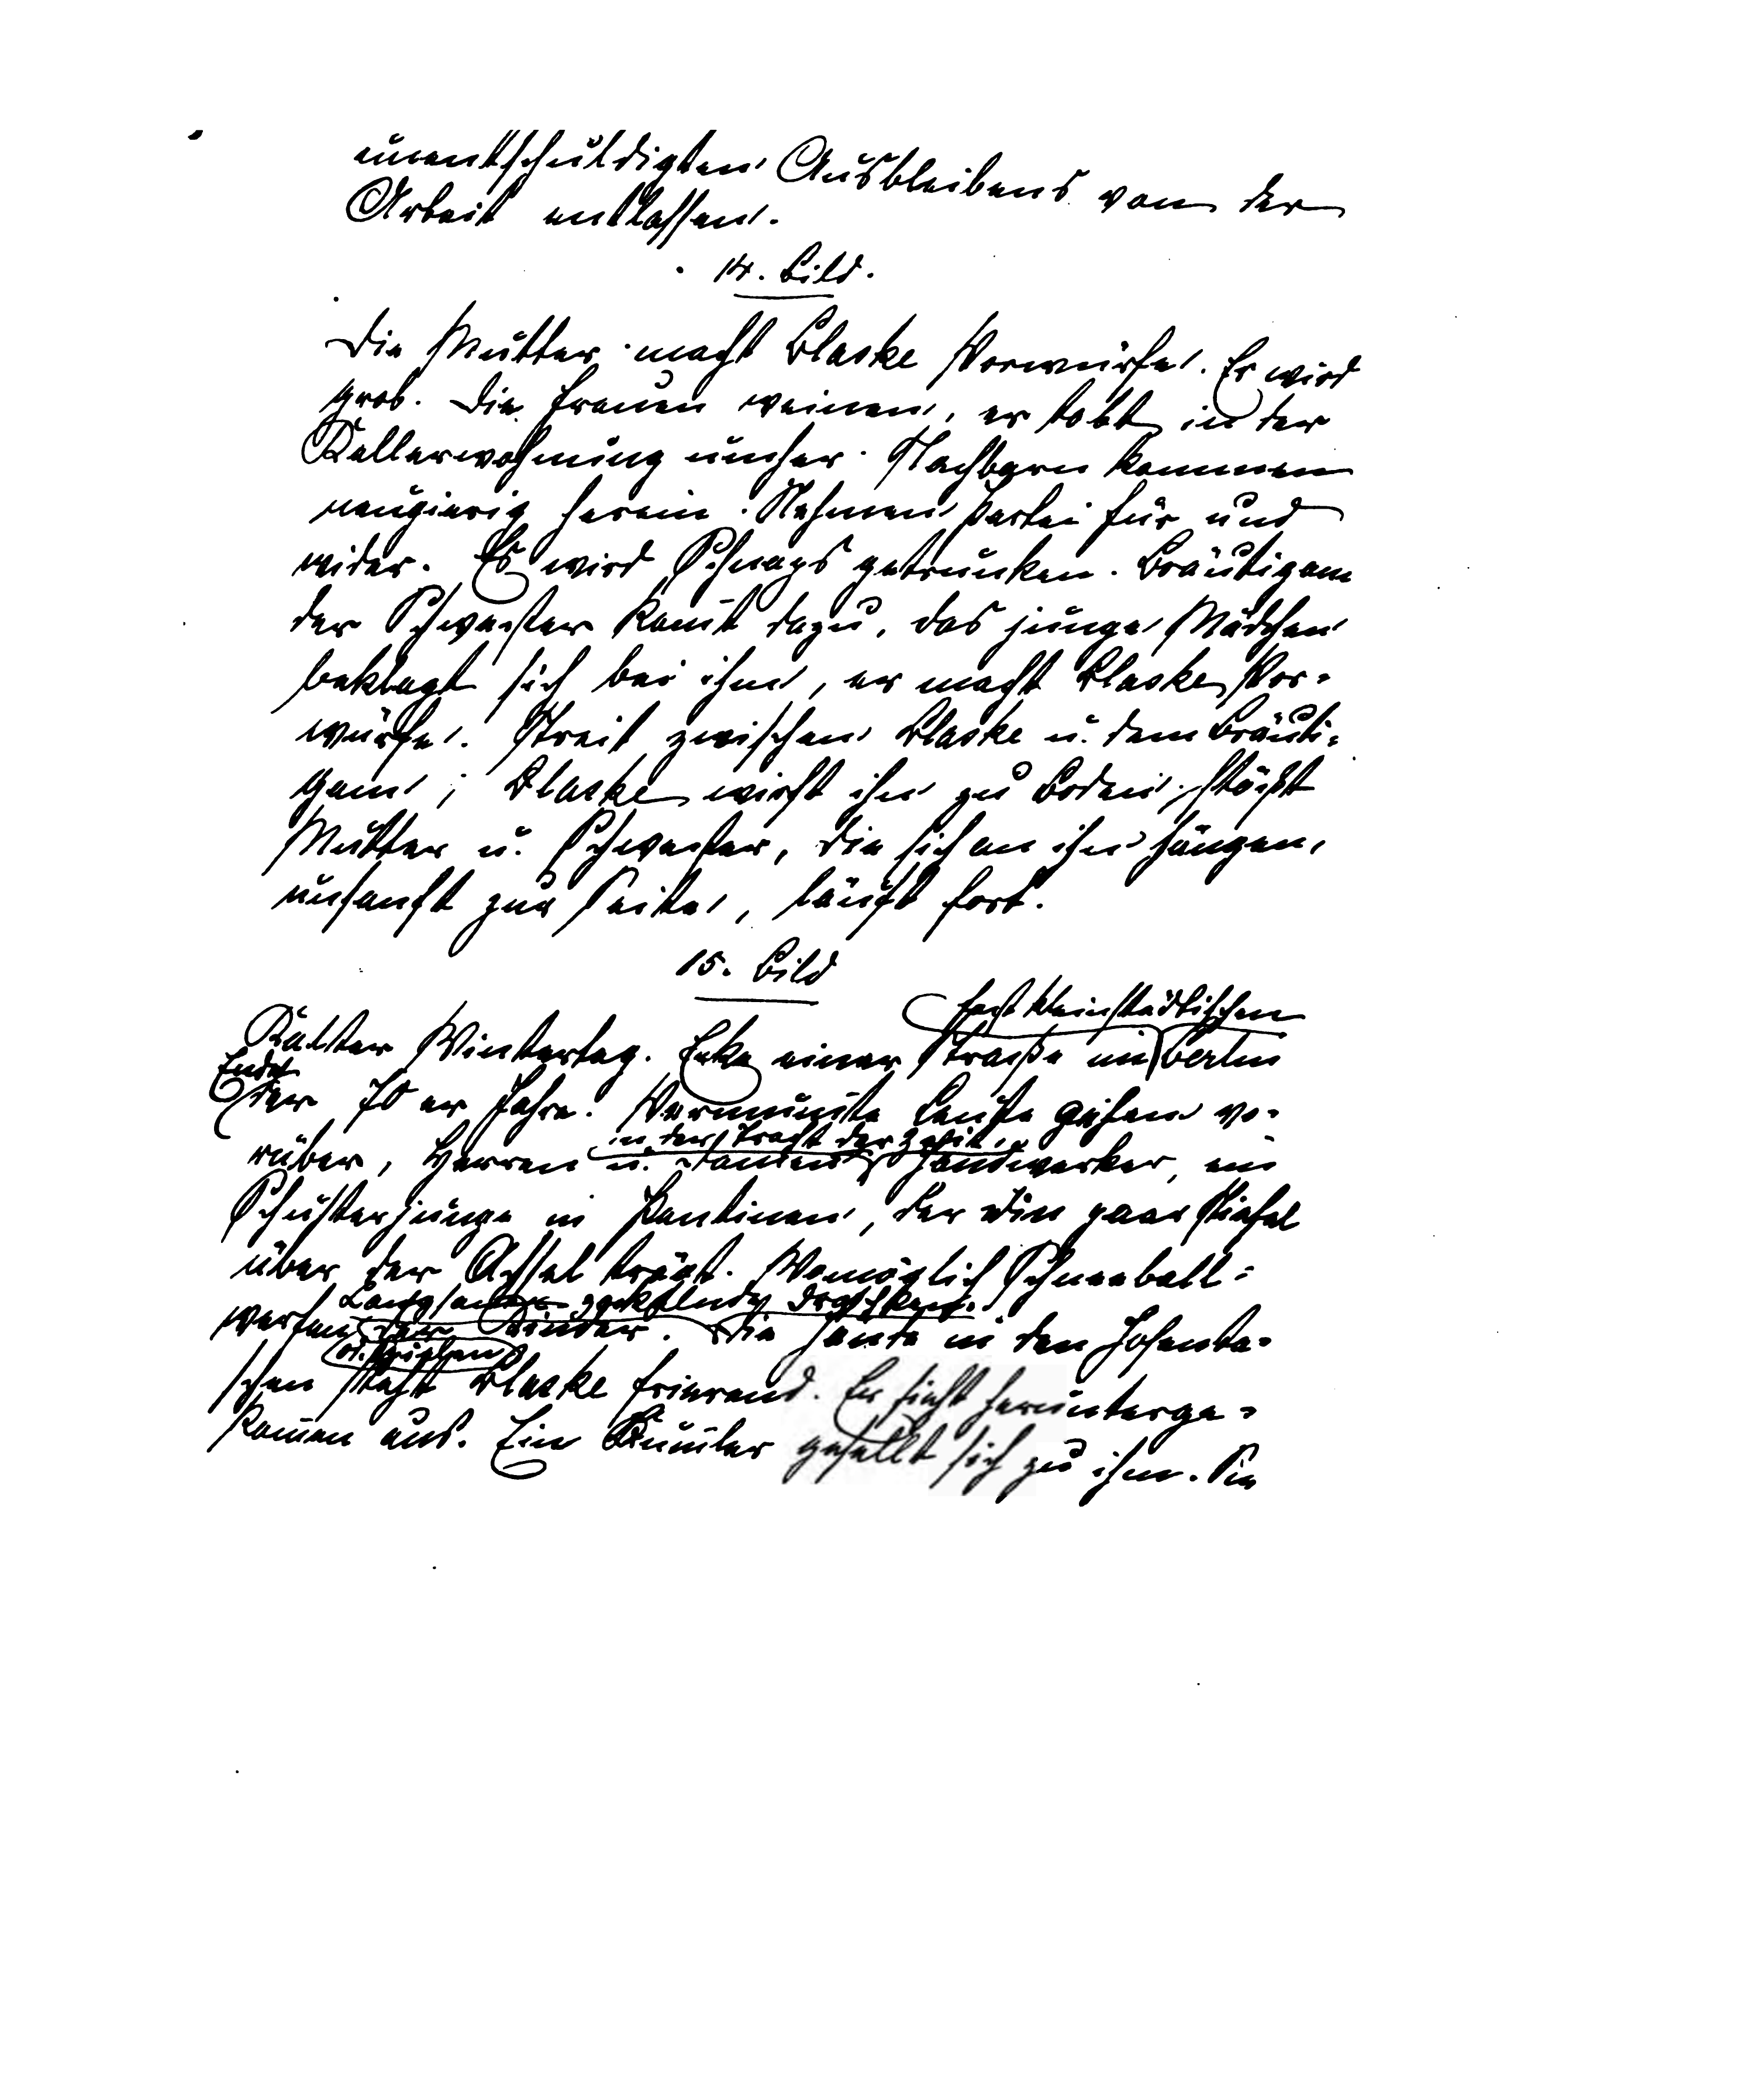 unentschuldigten Ausbleibens von der
Arbeit entlassen.
14. Bild.
Die Mutter macht Blaske Vorwürfe. Er wird
grob. Die Frauen weinen, er tobt in der
Kellerwohnung umher. Nachbarn kommen
neugierig herein. Nehmen Partei für und
wider. Es wird Schnaps getrunken. Bräutigam
der Schwester kom̄t dazu, das junge Mädchen
beklagt sich bei ihm, er macht Blaske Vor-
würfe. Streit zwischen Blaske u. dem Bräuti-
gam; Blaske wirft ihn zu Boden, stößt
Mutter u. Schwester, die sich an ihn hängen,
unsanft zur Seite, läuft fort.
15. Bild
fast kleinstädtischen
Kalter Wintertag. Ecke einer Straße im Berlin
Ende
der 70er Jahre. Vermum̄te Leute gehen vo-
in der Tracht der Zeit,
rüber, Herren u. Damen Handwerker, ein
Schusterjunge in Pantinen, der ein paar Stiefel
über der Achsel trägt. Womöglich Schneeball-
Langsam zockelnde Droschken.
werfen der Kinder. Die Hände in den Hosenta-
schen steht Blaske frierend. Er sieht herunterge-
kom̄en aus. Ein Bum̄ler gesellt sich zu ihm. Sie